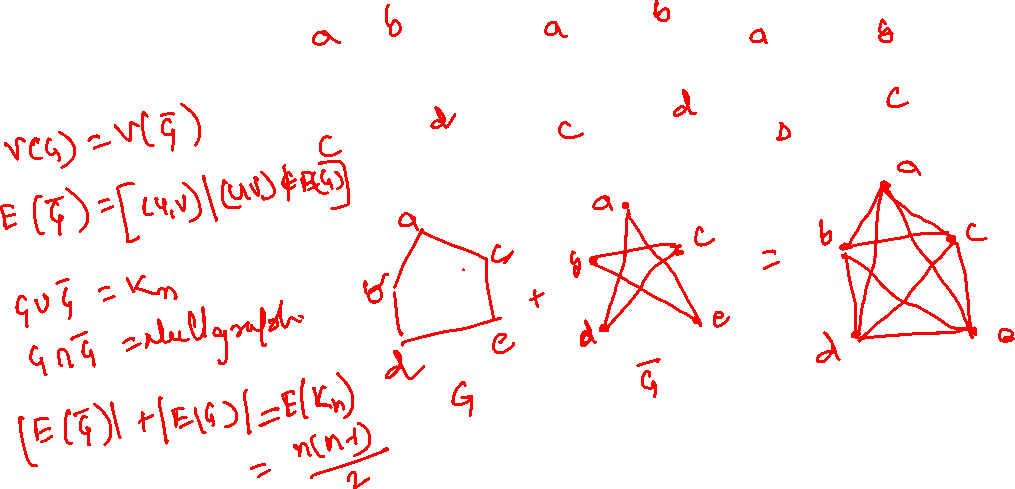 a b a b a b
d c d D c
c
V(G) = V(G̅)
E(G̅) = [(u,v) | (u,v) ∉ E(G)]
G ∪ G̅ = Kn
G ∩ G̅ = Nullgraph
|E(G̅)| + |E(G)| = E(Kn)
= n(n-1)/2
a b c d e
G
+
a b c d e
G̅
=
a b c d e